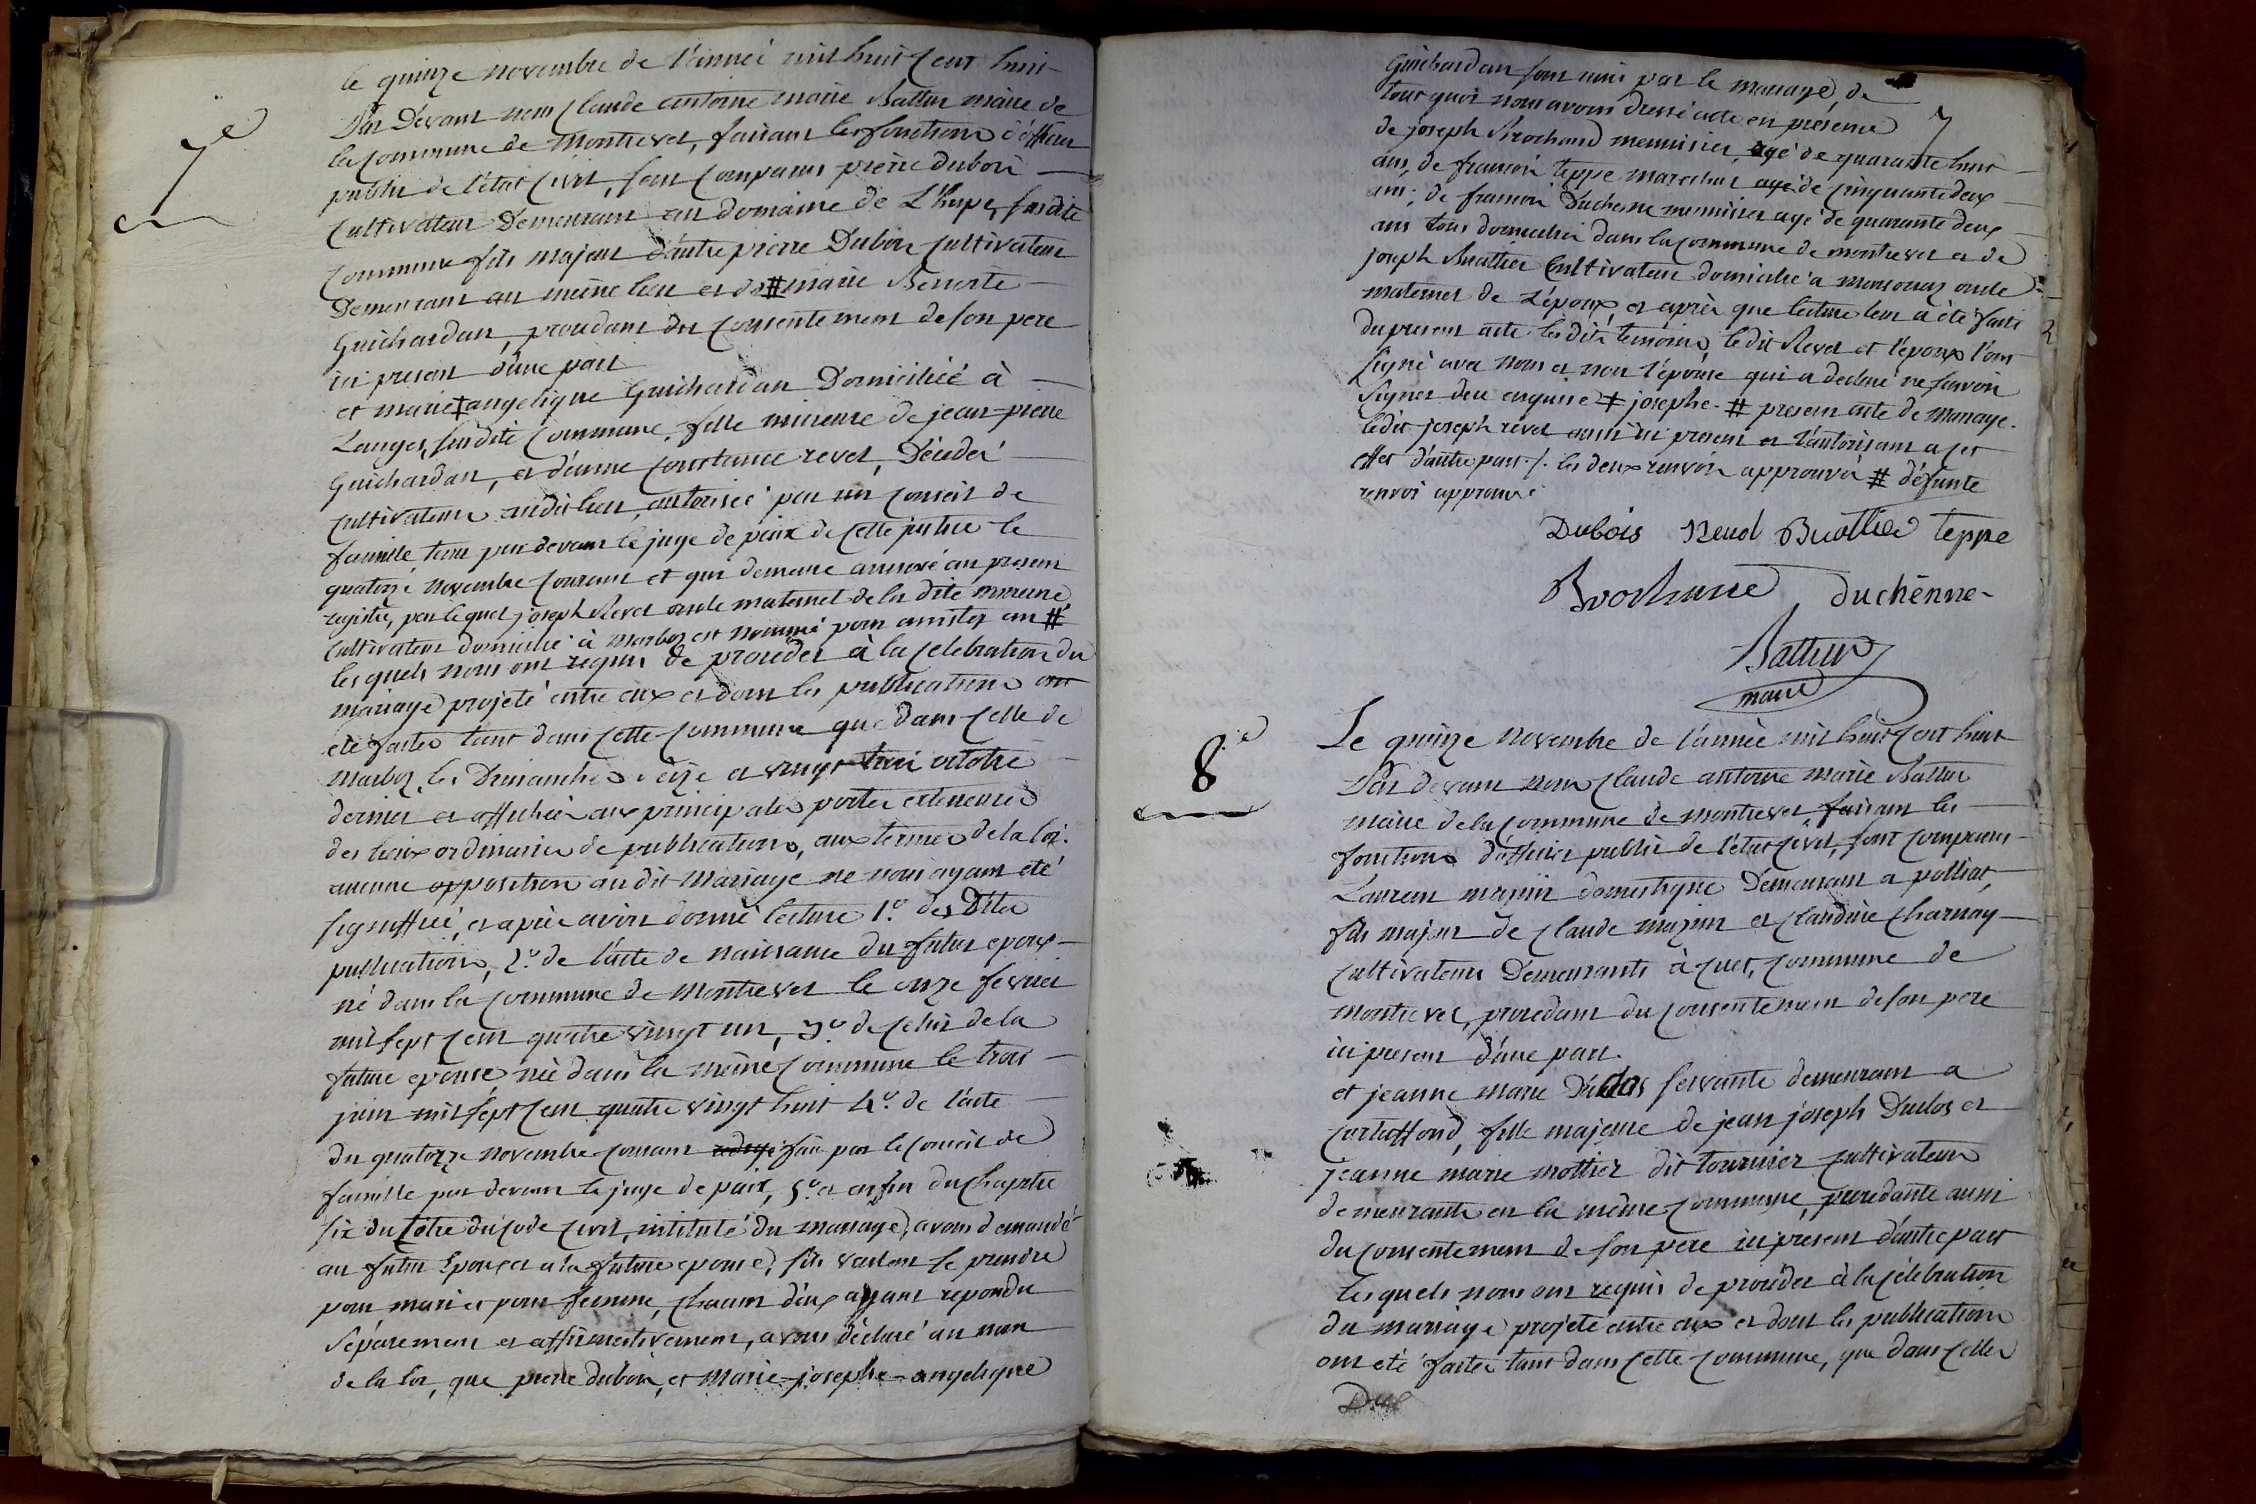 7e
le quinze novembre de l'année mil huit cent huit
Par devant nous Claude antoine marie Battur maire de
la Commune de Montrevel, faisant les fonctions d'officier
public de l'état Civil, sont Comparus pierre dubois
Cultivateur Demeurant au domaine de L'hupe, susdite
Commune fils majeur d'autre pierre Dubois Cultivateur
Demeurant au même lieu et de # marie Benoite
Guichardan, procedant du Consentement de son pere
ici present d'une part
et marie ‡ angelique Guichardan Domiciliée à
Langes, susdite Commune, fille mineure de jean-pierre
Guichardan, et d'anne Constance revel, Décedés
Cultivateurs audit lieu, autorisée par un Conseil de
famille tenu par devant le juge de paix de cette justice le
quatorze novembre Courant et qui demeure annexé au present
registre, par lequel joseph Revel oncle maternel de la dite mineure
Cultivateur domicilié à marboz est nommé pour assister au #
les quels nous ont requis de proceder à la Celebration du
mariage projeté entre eux et dont les publications ont
été faites tant dans Cette Commune que dans Celle de
Marboz, les Dimanches seize et vingt trois octobre
dernier et affichées aux principales portes exterieures
des lieux ordinaires de publications, aux termes de la loi.
aucune opposition au dit Mariage ne nous ayant été
signiffiée, et après avoir donné lecture 1.° des Dites
publications, 2.° de l'acte de naissance du futur epoux
né dans la Commune de Montrevel le onze fevrier
mil sept Cent quatre vingt un, 3.° de Celui de la
future epouse née dans la même Commune le trois
juin mil sept Cent quatre vingt huit 4.° de l'acte
du quatorze novembre Courant fait par le Conseil de
famille par devant le juge de paix, 5.° et enfin du Chapitre
six du titre du Code Civil, intitulé du mariage, avons demandé
au futur Epoux et a la future epouse, s'ils veulent se prendre
pour mari et pour femme, chacun d'eux ayant repondu
Séparement et affirmativement, avons déclaré au nom
de la loi, que pierre dubois, et Marie-josephe-angelique
Guichardan sont unis par le mariage, de
tout quoi nous avons dressé acte en présence
7
de joseph Brochand menuisier, agé de quarante huit
ans, de francois teppe marechal agé de Cinquante deux
ans; de francois Duchesne menuisier agé de quarante deux
ans tous domiciliés dans la Commune de montrevel et de
joseph Buattier Cultivateur domicilié a oncle
maternel de l'époux, et après que lecture leur a été faite
du present acte lesdits temoins, ledit Revel et l'epoux l'ont
signé avec nous et non l'épouse qui a declaré ne savoir
signer deu enquise ‡ josephe. # present acte de mariage.
ledit joseph revel aussi ici present et l'autorisant a cet
effet d'autre part ./. les deux renvois approuvés # défunte
renvoi approuvé
Dubois Revel Buottier teppe
duchênne
Battur
maire
8e
Le quinze novembre de l'année mil huit Cent huit
Par devant nous Claude antoine marie Battur
maire de la Commune de montrevel, faisant les
fonctions d'officier public de l'état Civil, sont Comparus
Laurent mazuir domestique Demeurant a polliat,
fils majeur de Claude mazuir et Claudine Charnay
Cultivateurs Demeurants à Cuet, Commune de
montrevel, procedant du Consentement de son pere
ici present d'une part.
et jeanne Marie Duclos servante demeurant a
Curtaffond, fille majeure de jean joseph Duclos et
jeanne marie mottier dit tournier Cultivateurs
demeurants en la même Commune, procedante aussi
du Consentement de son pere ici present d'autre part
Les quels nous ont requis de procéder à la Célébration
du mariage projeté entre eux et dont les publications
ont été faites tant dans Cette Commune, que dans Celles